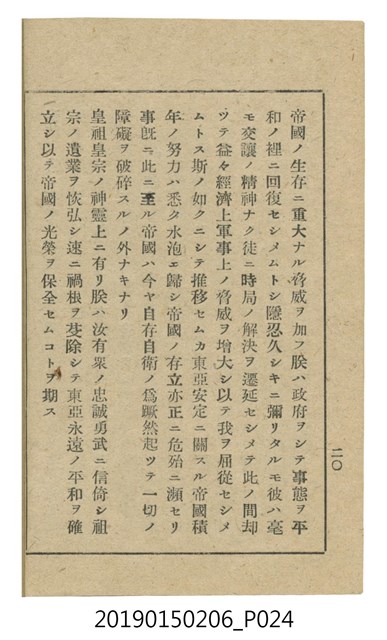 帝國ノ生存ニ重大ナル脅威ヲ加フ朕ハ政府ヲシテ事態ヲ平
和ノ裡ニ回復セシメムトシ隱忍久シキニ彌リタルモ彼ハ毫
モ交讓ノ精神ナク徒ニ時局ノ解決ヲ遷延セシメテ此ノ間却
ツテ益々經濟上軍事上ノ脅威ヲ增大シ以テ我ヲ屈從セシメ
ムトス斯ノ如クニシテ推移セムカ東亞安定ニ關スル帝國積
年ノ努力ハ悉ク水泡ニ歸シ帝國ノ存立亦正ニ危殆ニ瀕セリ
事旣ニ此ニ至ル帝國ハ今ヤ自存自衞ノ爲蹶然起ツテ一切ノ
障礙ヲ破碎スルノ外ナキナリ
皇祖皇宗ノ神靈上ニ有リ朕ハ汝有衆ノ忠誠勇武ニ信倚シ祖
宗ノ遺業ヲ恢弘シ速ニ禍根ヲ芟除シテ東亞永遠ノ平和ヲ確
立シ以テ帝國ノ光榮ヲ保全セムコトヲ期ス
二〇
20190150206_P024